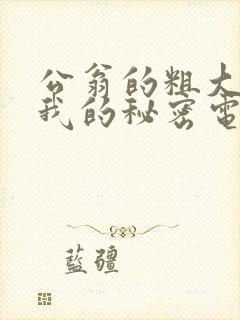 公翁的粗大
我的秘密電
藍疆